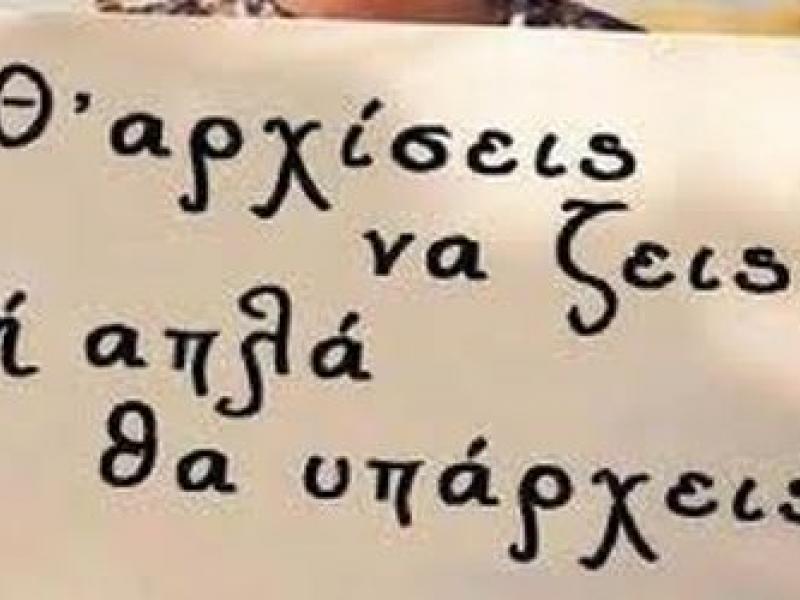 Θ'αρχίσεις
να ζεις
ή απλά
θα υπάρχεις